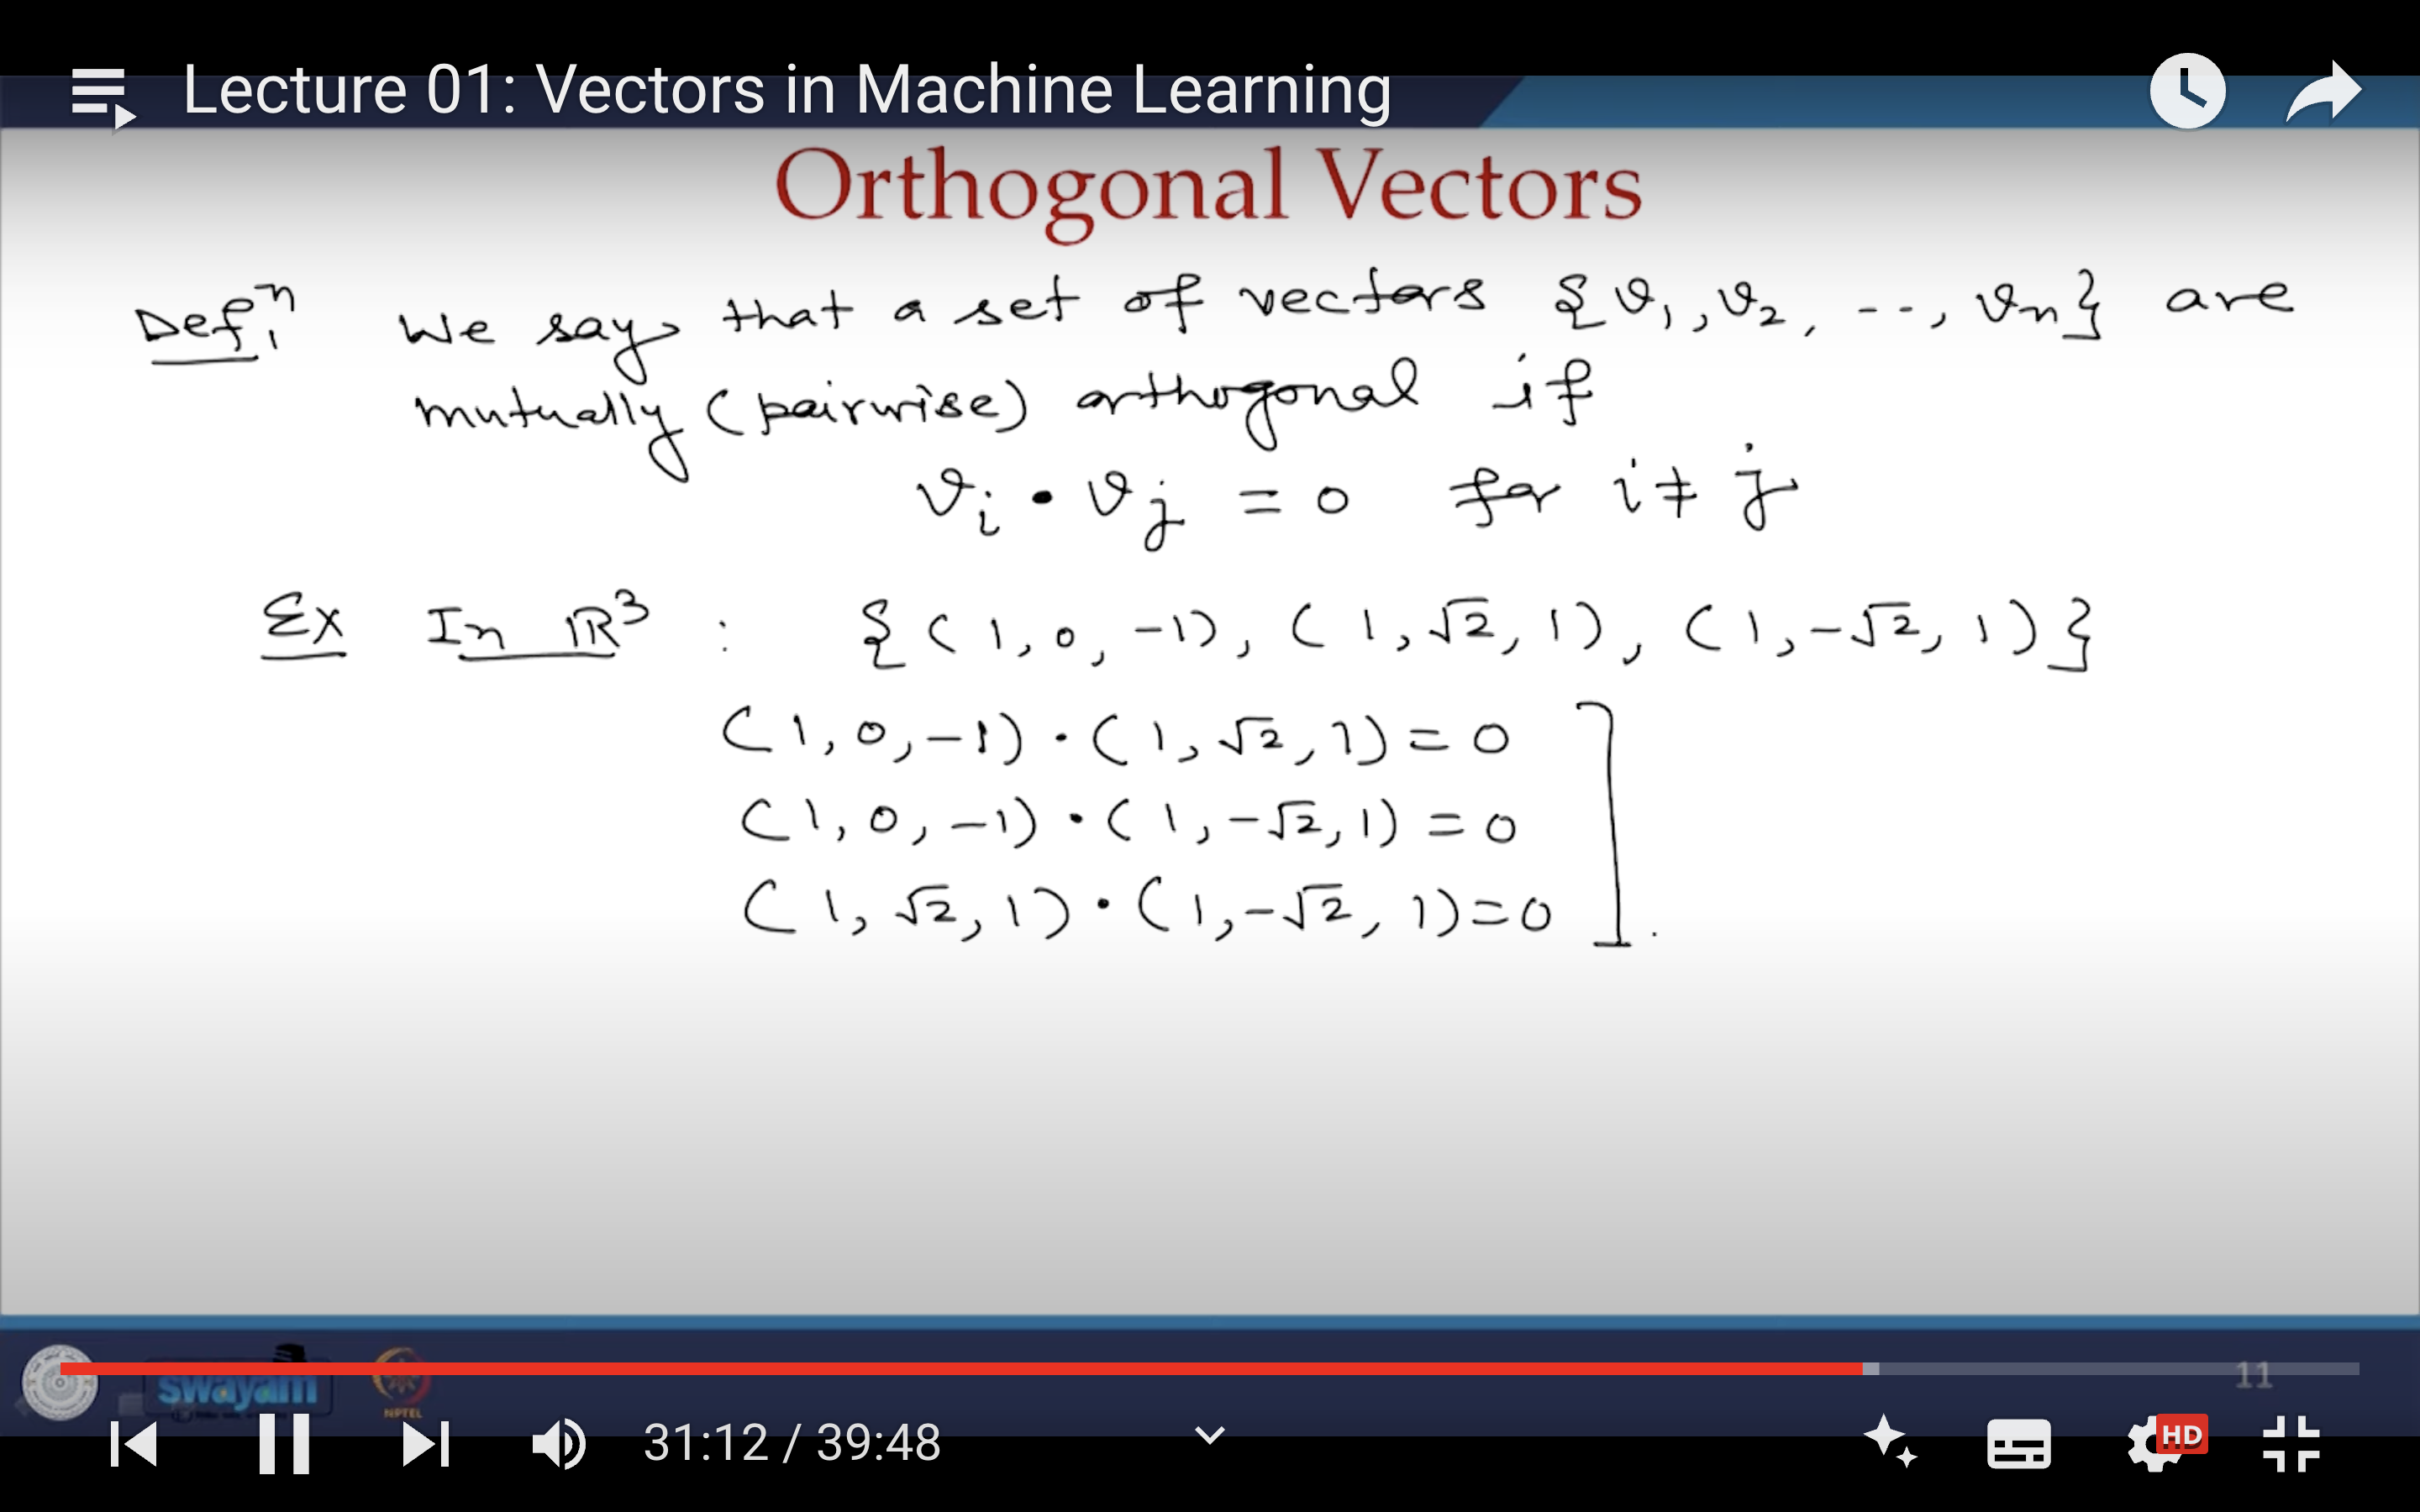 Lecture 01: Vectors in Machine Learning
Orthogonal Vectors
Defⁿ We say that a set of vectors {v₁, v₂, ---, vₙ} are
mutually (pairwise) orthogonal if
vᵢ • vⱼ = 0 for i ≠ j
Ex In ℝ³ : {(1, 0, -1), (1, √2, 1), (1, -√2, 1)}
(1, 0, -1) · (1, √2, 1) = 0
(1, 0, -1) · (1, -√2, 1) = 0
(1, √2, 1) · (1, -√2, 1) = 0 ].
11
swayam NPTEL
31:12 / 39:48 HD